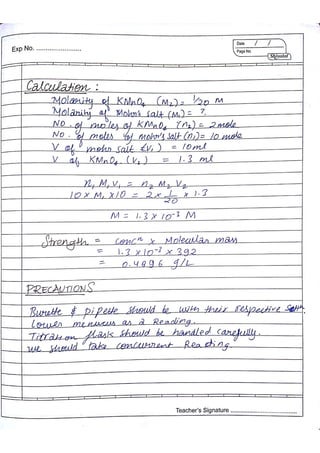 Exp No. ........................
Date / /
Page No.
Calculation :
Molarity of KMnO4 (M2) = 1/20 M
Molarity of Mohr's salt (M1) = ?
NO. of moles of KMnO4 (n2) = 2 mole
NO. of moles of Mohr's salt (n1) = 10 mole
V of mohr salt (V1) = 10ml
V of KMnO4 (V2) = 1.3 ml
n1 M1 V1 = n2 M2 V2
10 x M1 x 10 = 2 x 1/20 x 1.3
M = 1.3 x 10-3 M
Strength = concn x Molecular mass
= 1.3 x 10-3 x 392
= 0.4896 g/L
PRECAUTIONS
Burette & pipette should be with their respective
Lower meniscus as a Reading.
Titration flask should be handled carefully.
we should take concurrent Reading.
Teacher's Signature ........................